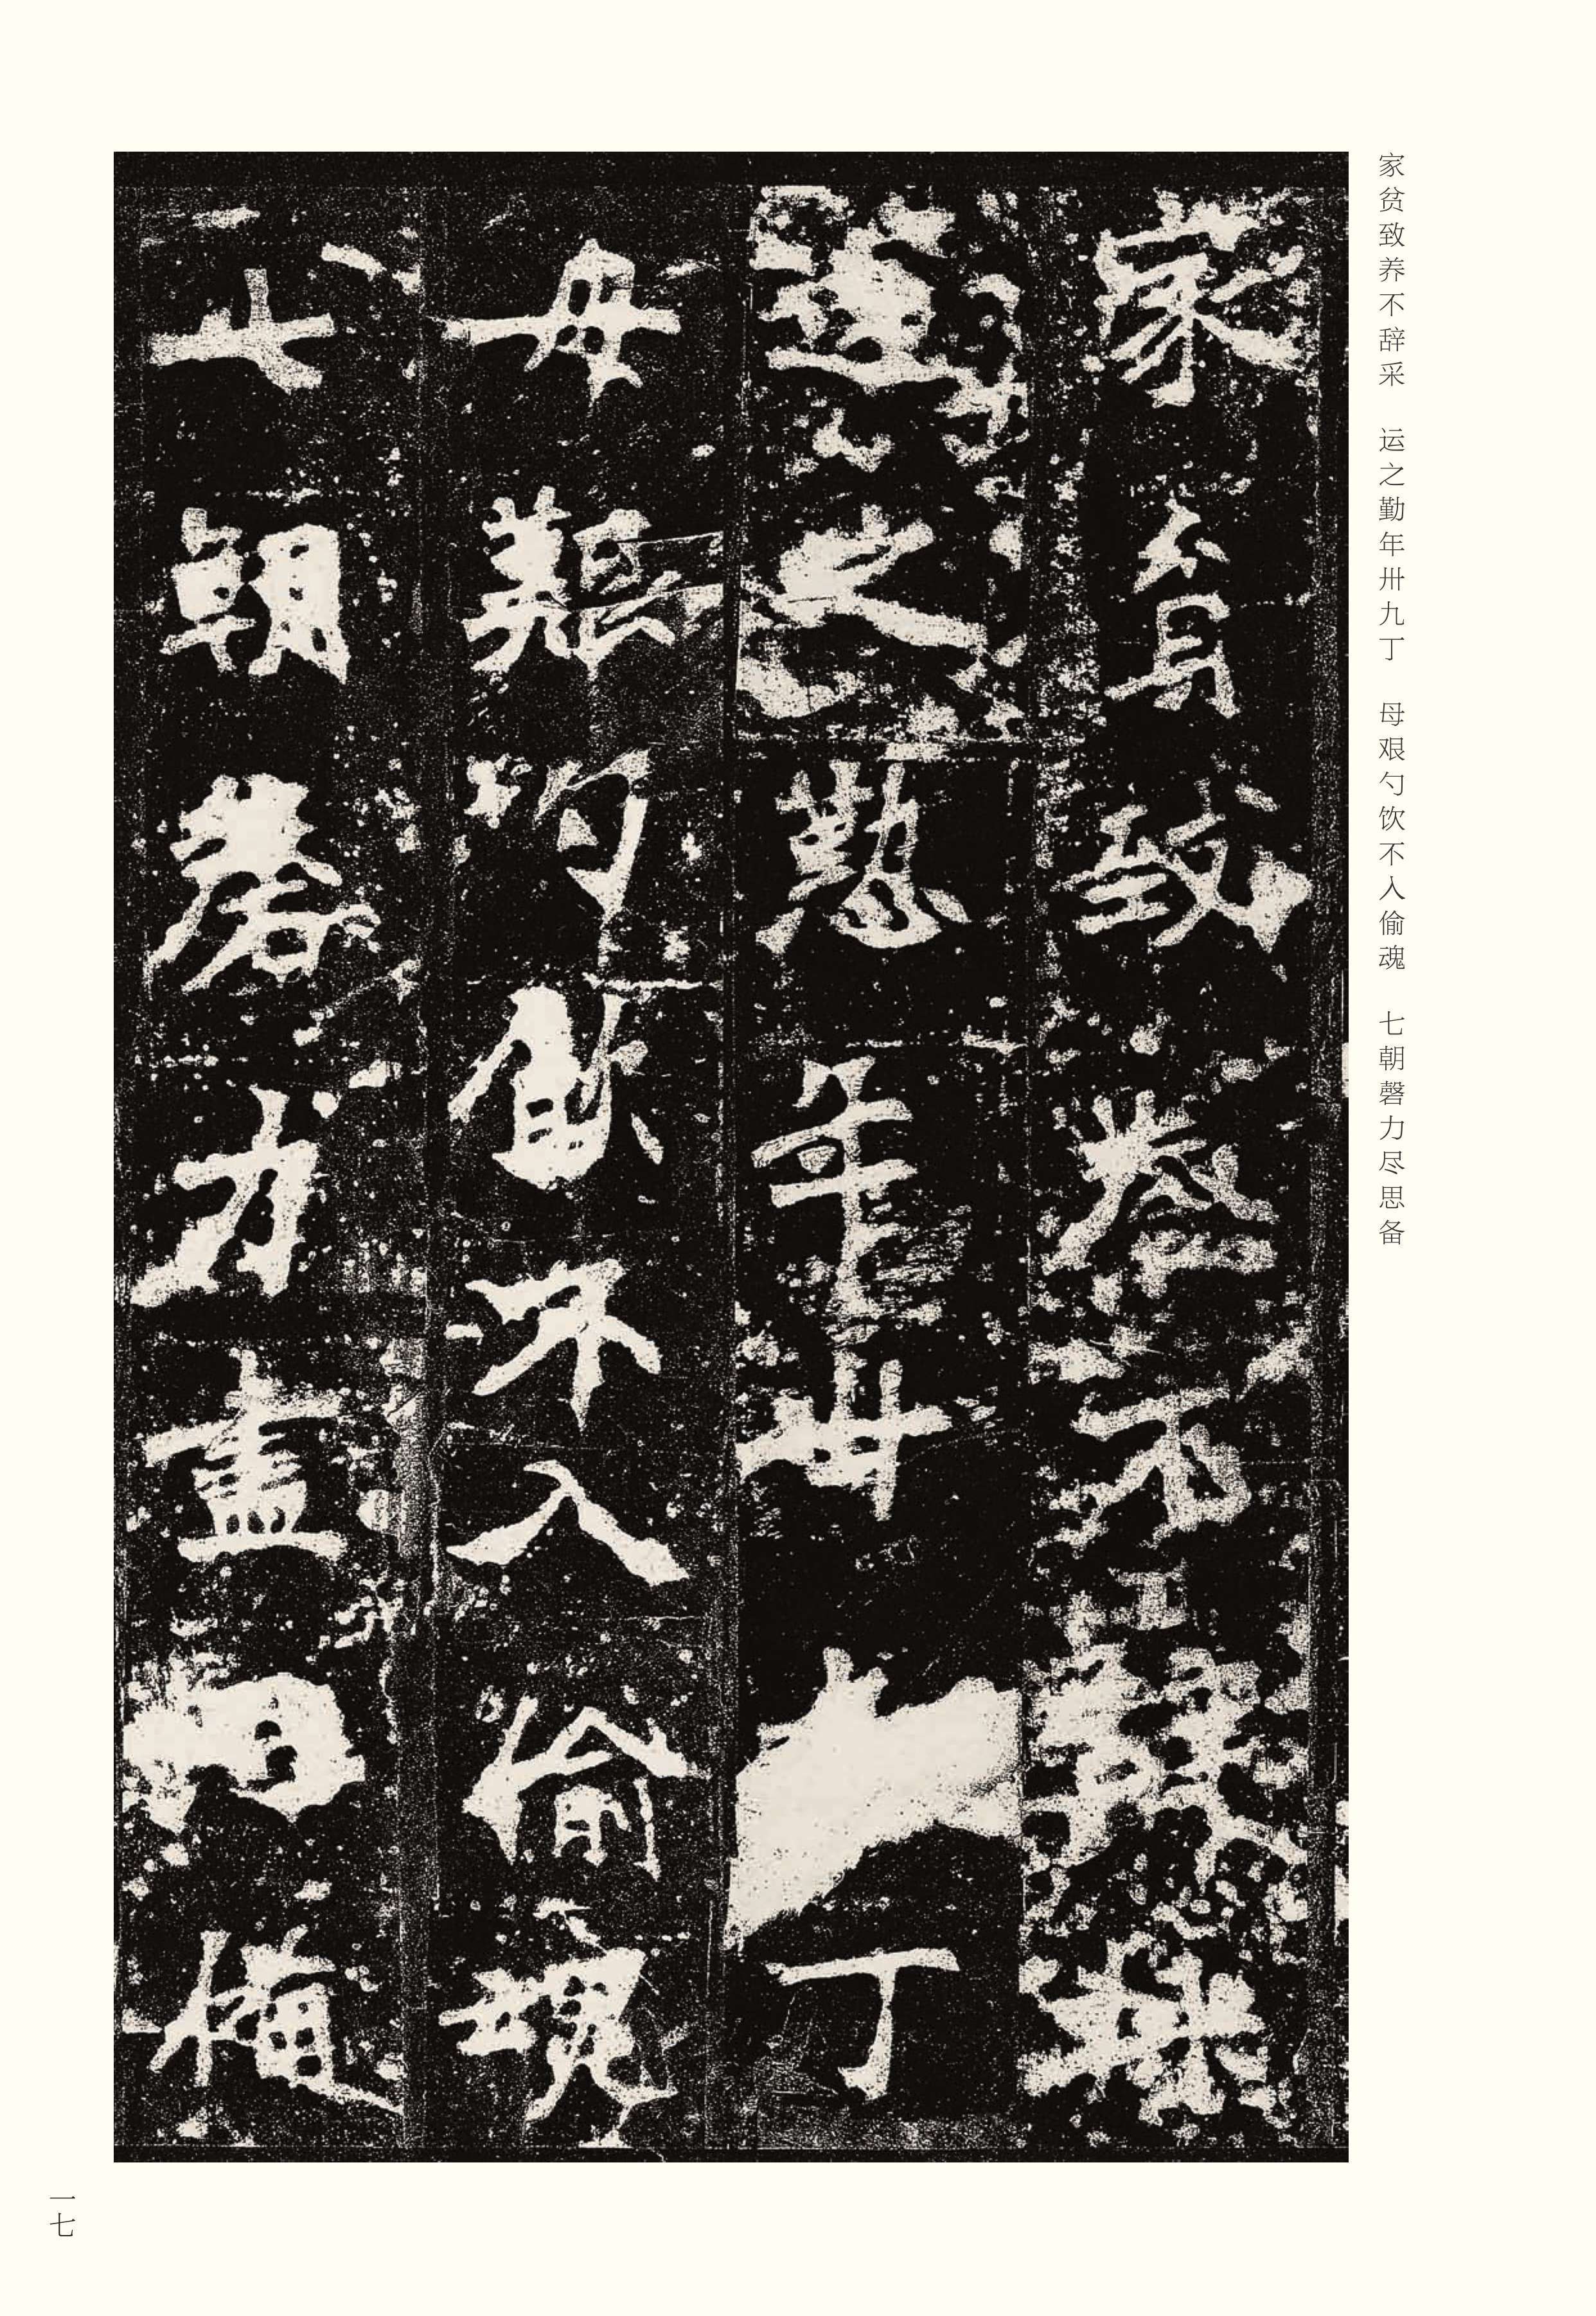 家贫致养不辞采　运之勤年卅九丁　母艰勺饮不入偷魂　七朝磬力尽思备
家貧致養不辞採
運之懃年卅丁
母艱勺飲不入偷魂
七朝磬力盡思備
一七